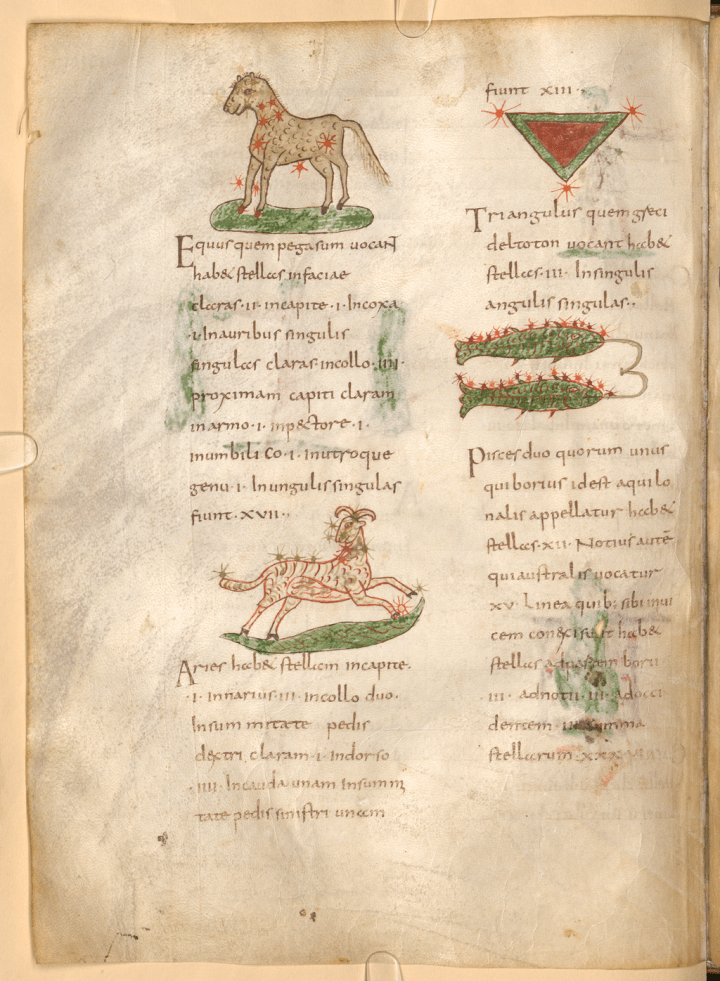 Equus quem pegasum vocant
habet stellas in faciae
claras · II · in capite · I · In coxa
· I · In auribus singulis
singulas claras · in collo · IIII ·
proximam capiti claram
in armo · I · in pectore · I ·
in umbilico · I · in utroque
genu · I · In ungulis singulas
fiunt · XVII ·
Aries habet stellam in capite ·
· I · in narius · III · in collo duo ·
In summitate pedis
dextri claram · I · In dorso
· IIII · In cauda unam In summi
tate pedis sinistri unam
fiunt XIII ·
Triangulus quem greci
deltoton vocant habet
stellas · III · In singulis
angulis singulas ·
Pisces duo quorum unus
qui borius id est aquilo
nalis appellatur habet
stellas · XII · Notius autē
qui australis vocatur
XV · Linea quib; sibi invi
cem habet
stellas borii
· III · ad notii · III · ad occi
dentem · summa
stellarum ·